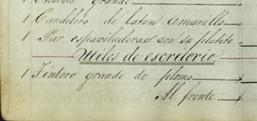 grande
1 Candelero de laton amarillo
1 Par espaviladeras con su platito
Utiles de escritorio
1 Tintero grande de plomo
Al frente